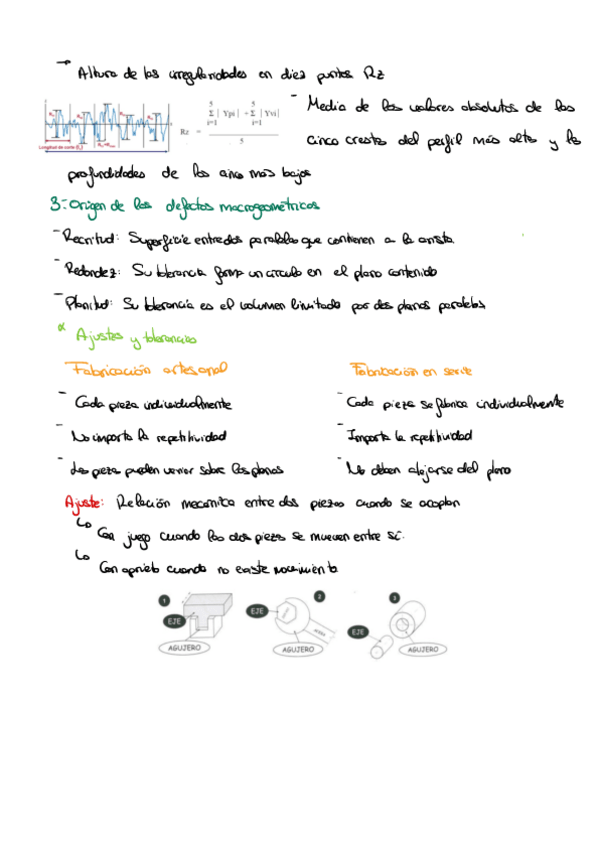 → Altura de las irregularidades en diez puntos Rz
Longitud de corte (L)
Rz = 5 Σ i=1 | Ypi | + 5 Σ i=1 | Yvi | / 5
- Media de los valores absolutos de las
cinco crestas del perfil más altas y la
profundidades de los cinco más bajos
3.- Origen de los defectos macrogeométricos
- Rectitud: Superficie entre dos paralelas que contienen a la arista.
- Redondez: Su tolerancia forma un círculo en el plano contenido
- Planitud: Su tolerancia es el volumen limitado por dos planos paralelos
* Ajustes y tolerancias
Fabricación artesanal
- Cada pieza individualmente
- No importa la repetitividad
- Las piezas pueden variar sobre los planos
Fabricación en serie
- Cada pieza se fabrica individualmente
- Importa la repetitividad
- No deben alejarse del plano
Ajuste: Relación mecánica entre dos piezas cuando se acoplan
↳ Con juego cuando las dos piezas se mueven entre sí.
↳ Con aprieto cuando no existe movimiento
1
EJE
AGUJERO
2
EJE
AGUJERO
3
EJE
AGUJERO